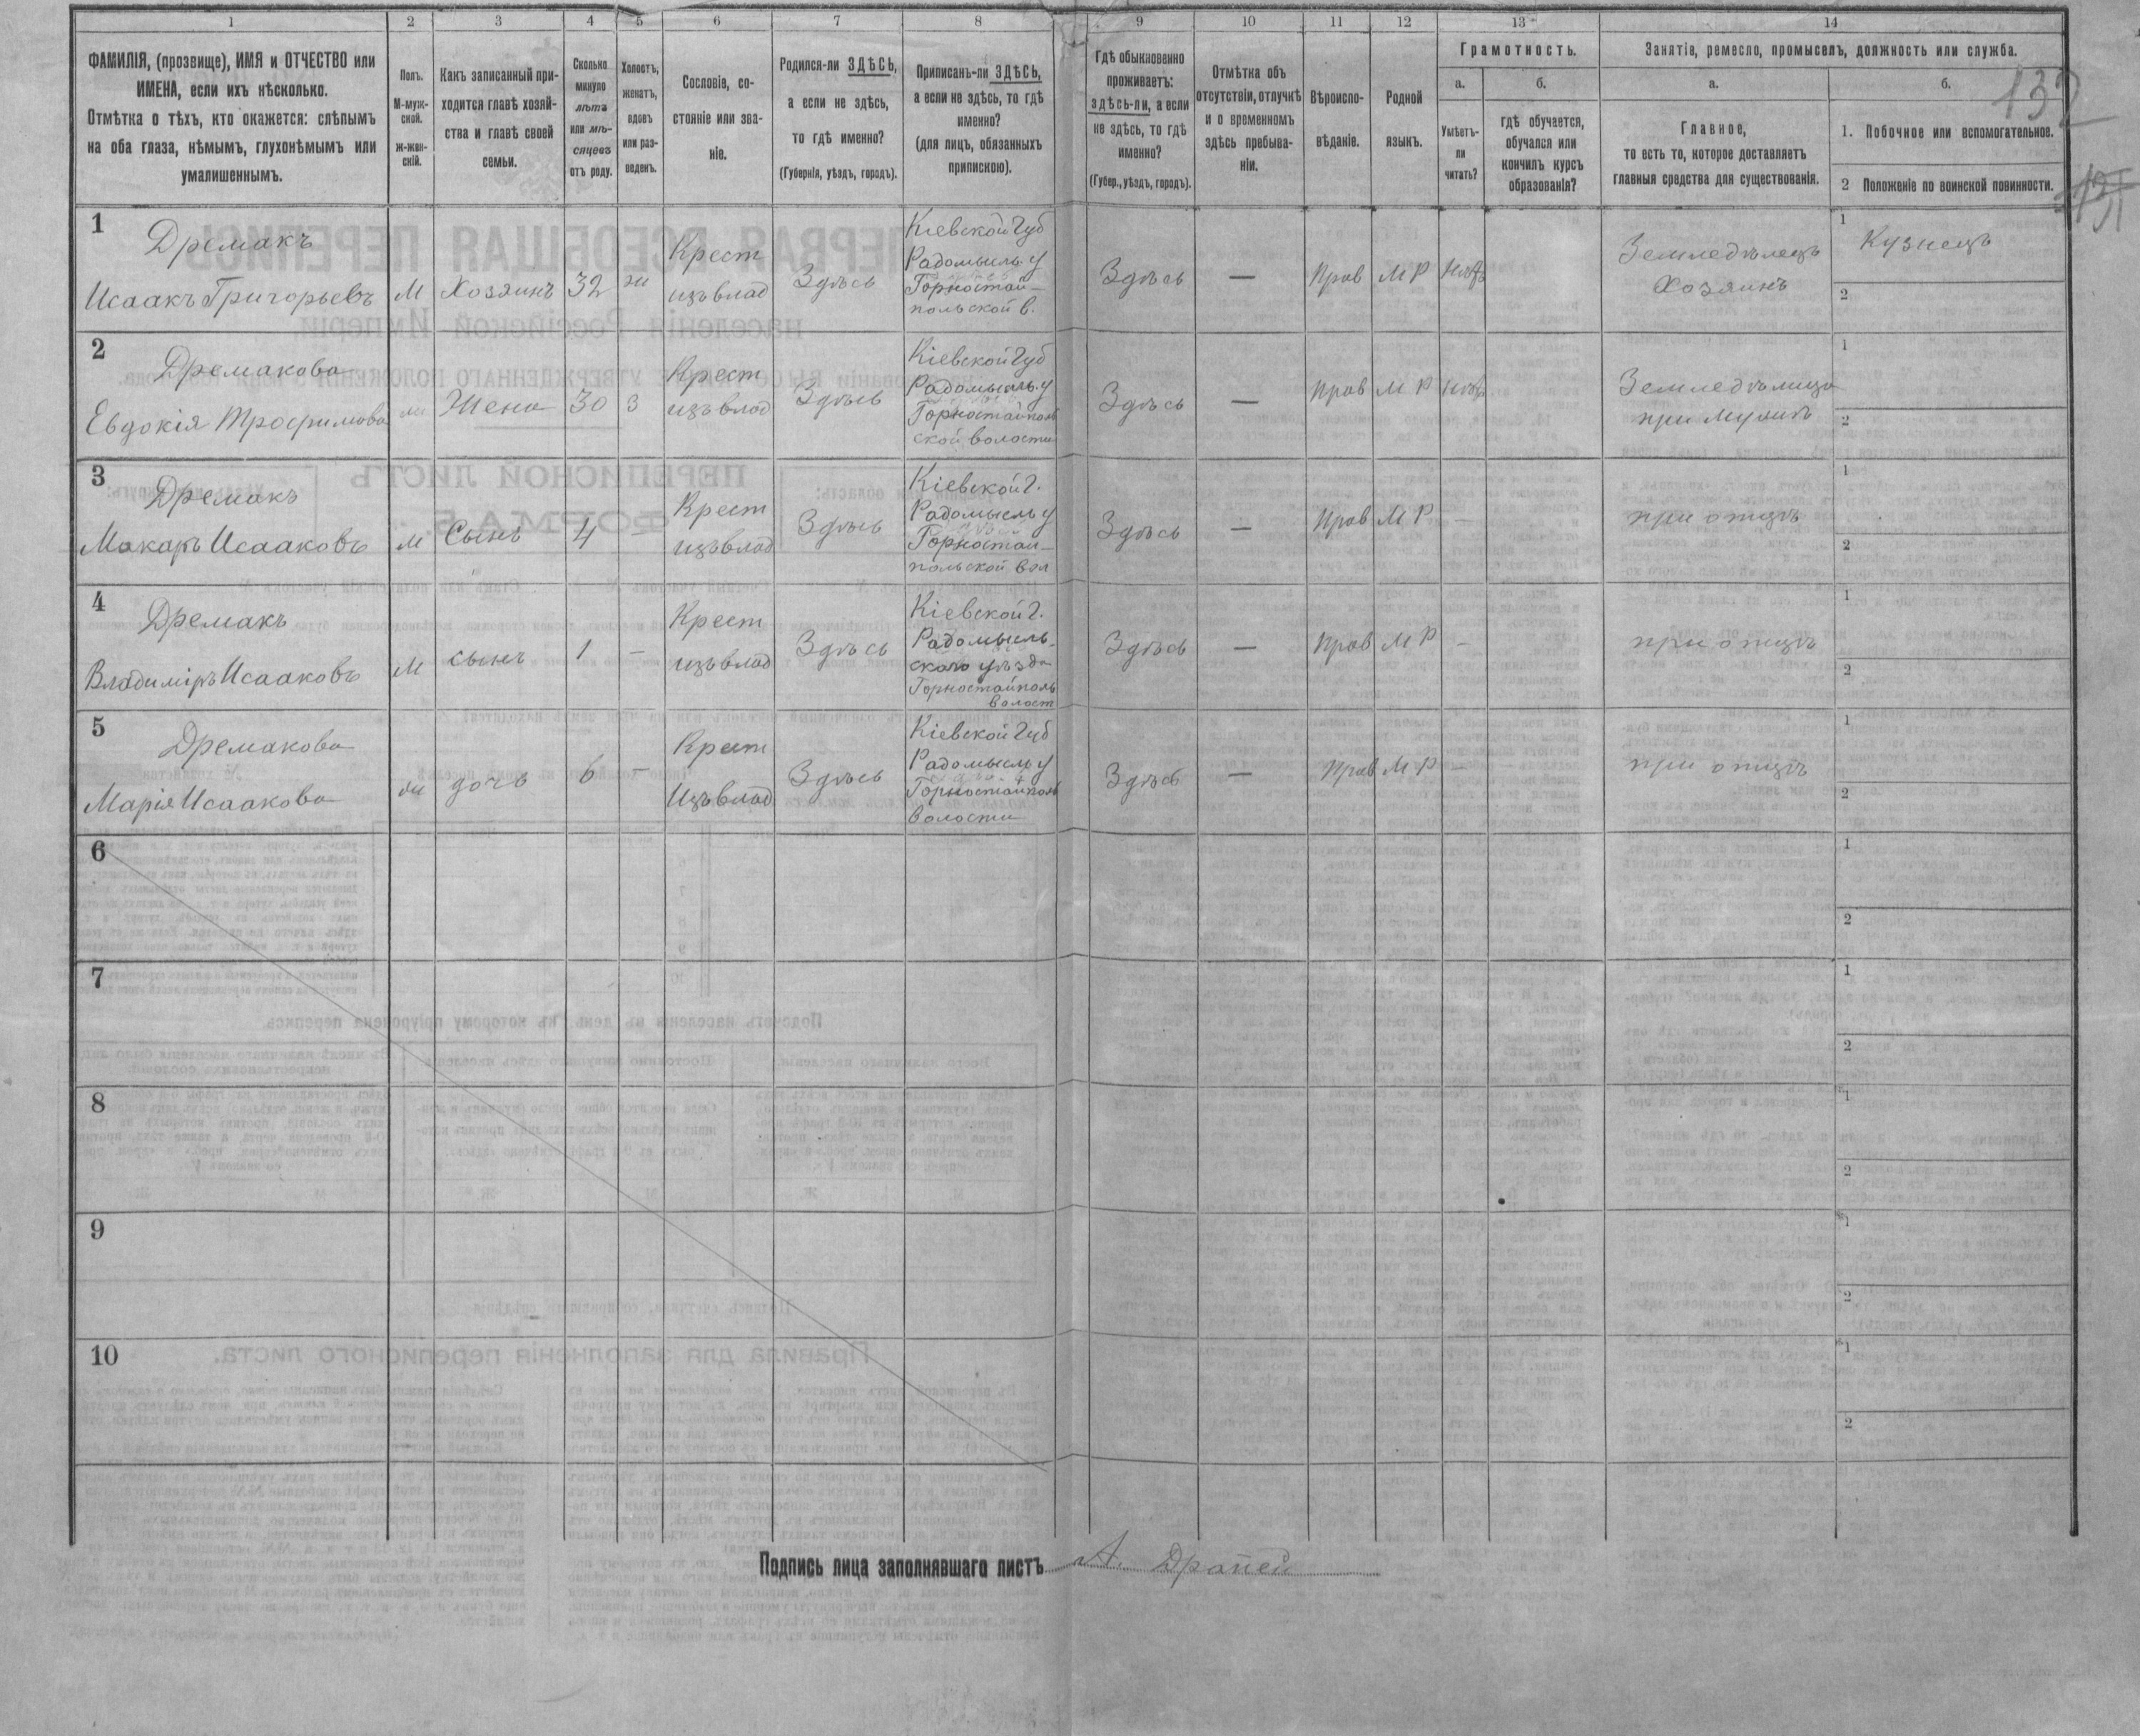 1 2 3 4 5 6 7 8 9 10 11 12 13 14
ФАМИЛІЯ, (прозвище), ИМЯ и ОТЧЕСТВО или
ИМЕНА, если ихъ нѣсколько.
Отмѣтка о тѣхъ, кто окажется: слѣпымъ
на оба глаза, нѣмымъ, глухонѣмымъ или
умалишеннымъ.
Полъ.
М-муж-
ской.
Ж-жен-
скій.
Какъ записанный при-
ходится главѣ хозяй-
ства и главѣ своей
семьи.
Сколько
минуло
лѣтъ
или мѣ-
сяцевъ
отъ роду.
Холостъ,
женатъ,
вдовъ
или раз-
веденъ.
Сословіе, со-
стояніе или зва-
ніе.
Родился-ли ЗДѢСЬ,
а если не здѣсь,
то гдѣ именно?
(Губернія, уѣздъ, городъ).
Приписанъ-ли ЗДѢСЬ,
а если не здѣсь, то гдѣ
именно?
(для лицъ, обязанныхъ
припискою).
Гдѣ обыкновенно
проживаетъ:
здѣсь-ли, а если
не здѣсь, то гдѣ
именно?
(Губер., уѣздъ, городъ).
Отмѣтка объ
отсутствіи, отлучкѣ
и о временномъ
здѣсь пребыва-
ніи.
Вѣроиспо-
вѣданіе.
Родной
языкъ.
Грамотность.
а.
Умѣетъ-
ли
читать?
б.
гдѣ обучается,
обучался или
кончилъ курсъ
образованія?
Занятіе, ремесло, промыселъ, должность или служба.
а.
Главное,
то есть то, которое доставляетъ
главныя средства для существованія.
б.
132
1. Побочное или вспомогательное.
2 Положеніе по воинской повинности.
1
Дремакъ
Исаакъ Григорьевъ
М
Хозяинъ
32
ж
Крест
изъ влад
Здѣсь
Кіевской Губ
Радомысль у
Горностай-
польской в.
Здѣсь
—
Прав
М Р
нѣтъ
Земледѣлецъ
Хозяинъ
1
Кузнецъ
2
2
Дремакова
Евдокія Трофимова
ж
Жена
30
З
Крест
изъ влад
Здѣсь
Кіевской Губ
Радомысль у
Горностайполь
ской волости
Здѣсь
—
Прав
М Р
нѣтъ
Земледѣлица
при мужѣ
1
2
3
Дремакъ
Макаръ Исааковъ
М
Сынъ
4
—
Крест
изъ влад
Здѣсь
Кіевской Г.
Радомысль у
Горностай-
польской вол
Здѣсь
—
Прав
М Р
—
при отцѣ
1
2
4
Дремакъ
Владиміръ Исааковъ
М
сынъ
1
—
Крест
изъ влад
Здѣсь
Кіевской Г.
Радомысль-
ского уѣзда
Горностайполь
волост
Здѣсь
—
Прав
М Р
—
при отцѣ
1
2
5
Дремакова
Марія Исаакова
ж
дочь
6
—
Крест
Изъ влад
Здѣсь
Кіевской Губ
Радомысль у
Горностайполь
волости
Здѣсь
—
Прав
М Р
—
при отцѣ
1
2
6
1
2
7
1
2
8
1
2
9
1
2
10
1
2
Подпись лица заполнявшаго листъ А. Драпей